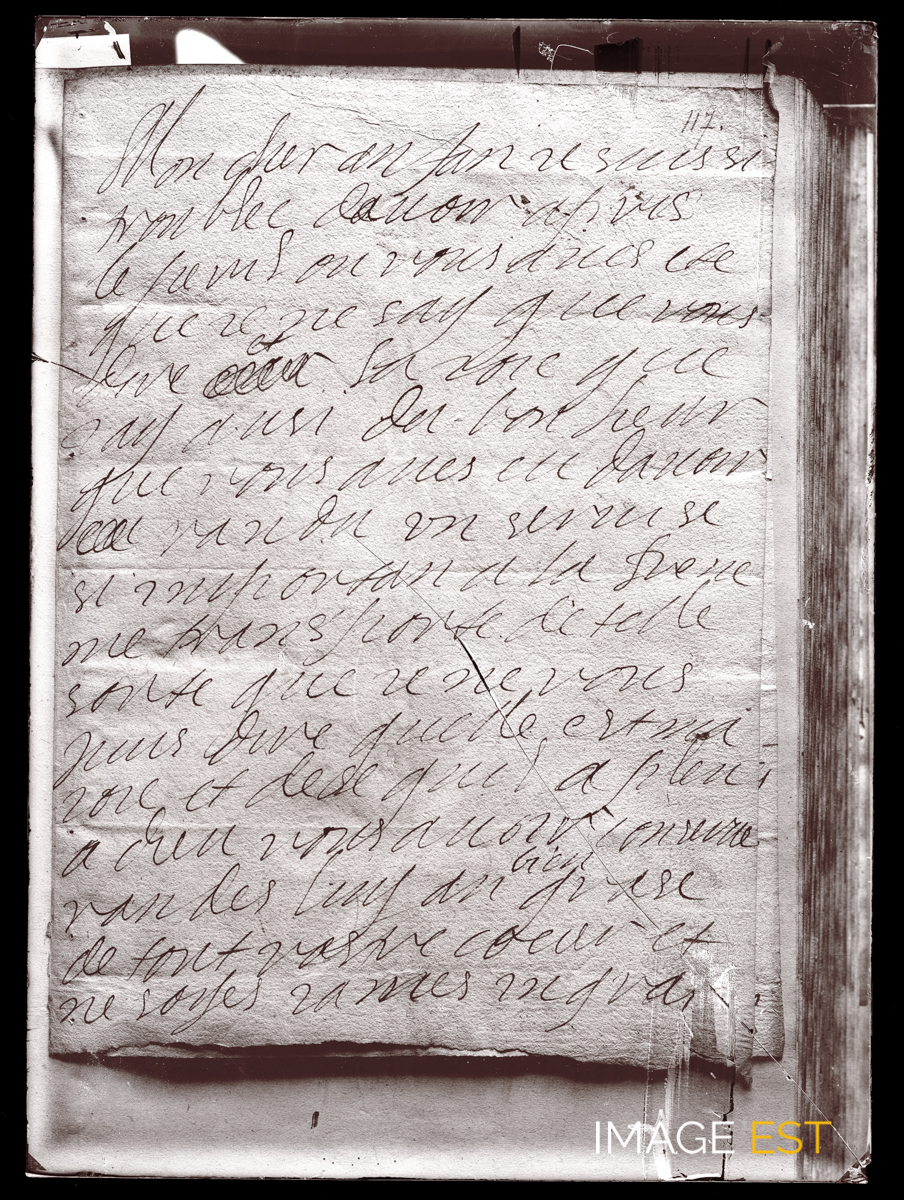 117.
Mon cher anfan ie suis si
troublee dauoir apris
le peril ou vous aues ete
que ie ne say que vous
dire et la ioie que
iay ausi du bonheur
que vous aues eu dauoir
randu vn seruise
si important a la Frence
me transporte de telle
sorte que ie ne vous
puis dire quelle est ma
ioie et de se quil a pleu
a dieu vous auoir conserue
randes luy an bien grase
de tout vostre coeur et
ne soyes iames ingra
IMAGE EST